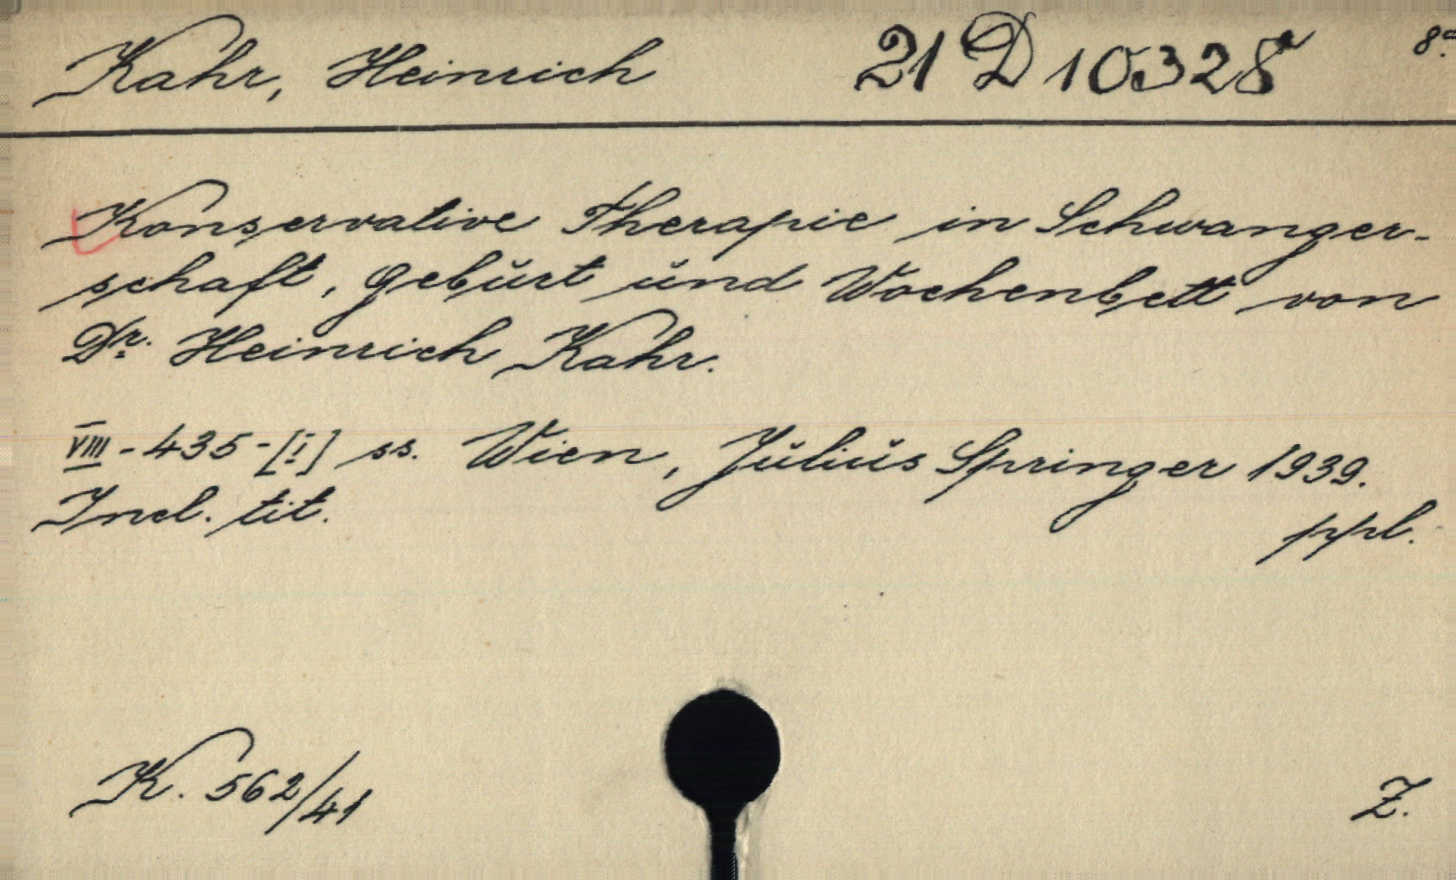 Kahr, Heinrich 21 D 10328 8°.
Konservative Therapie in Schwanger-
schaft, Gebŭrt ŭnd Wochenbett von
Dr. Heinrich Kahr.
VIII - 435 - [I] ss. Wien, Jŭliŭs Springer 1939.
Incl. tit.
ppl.
K. 562/41 Z.